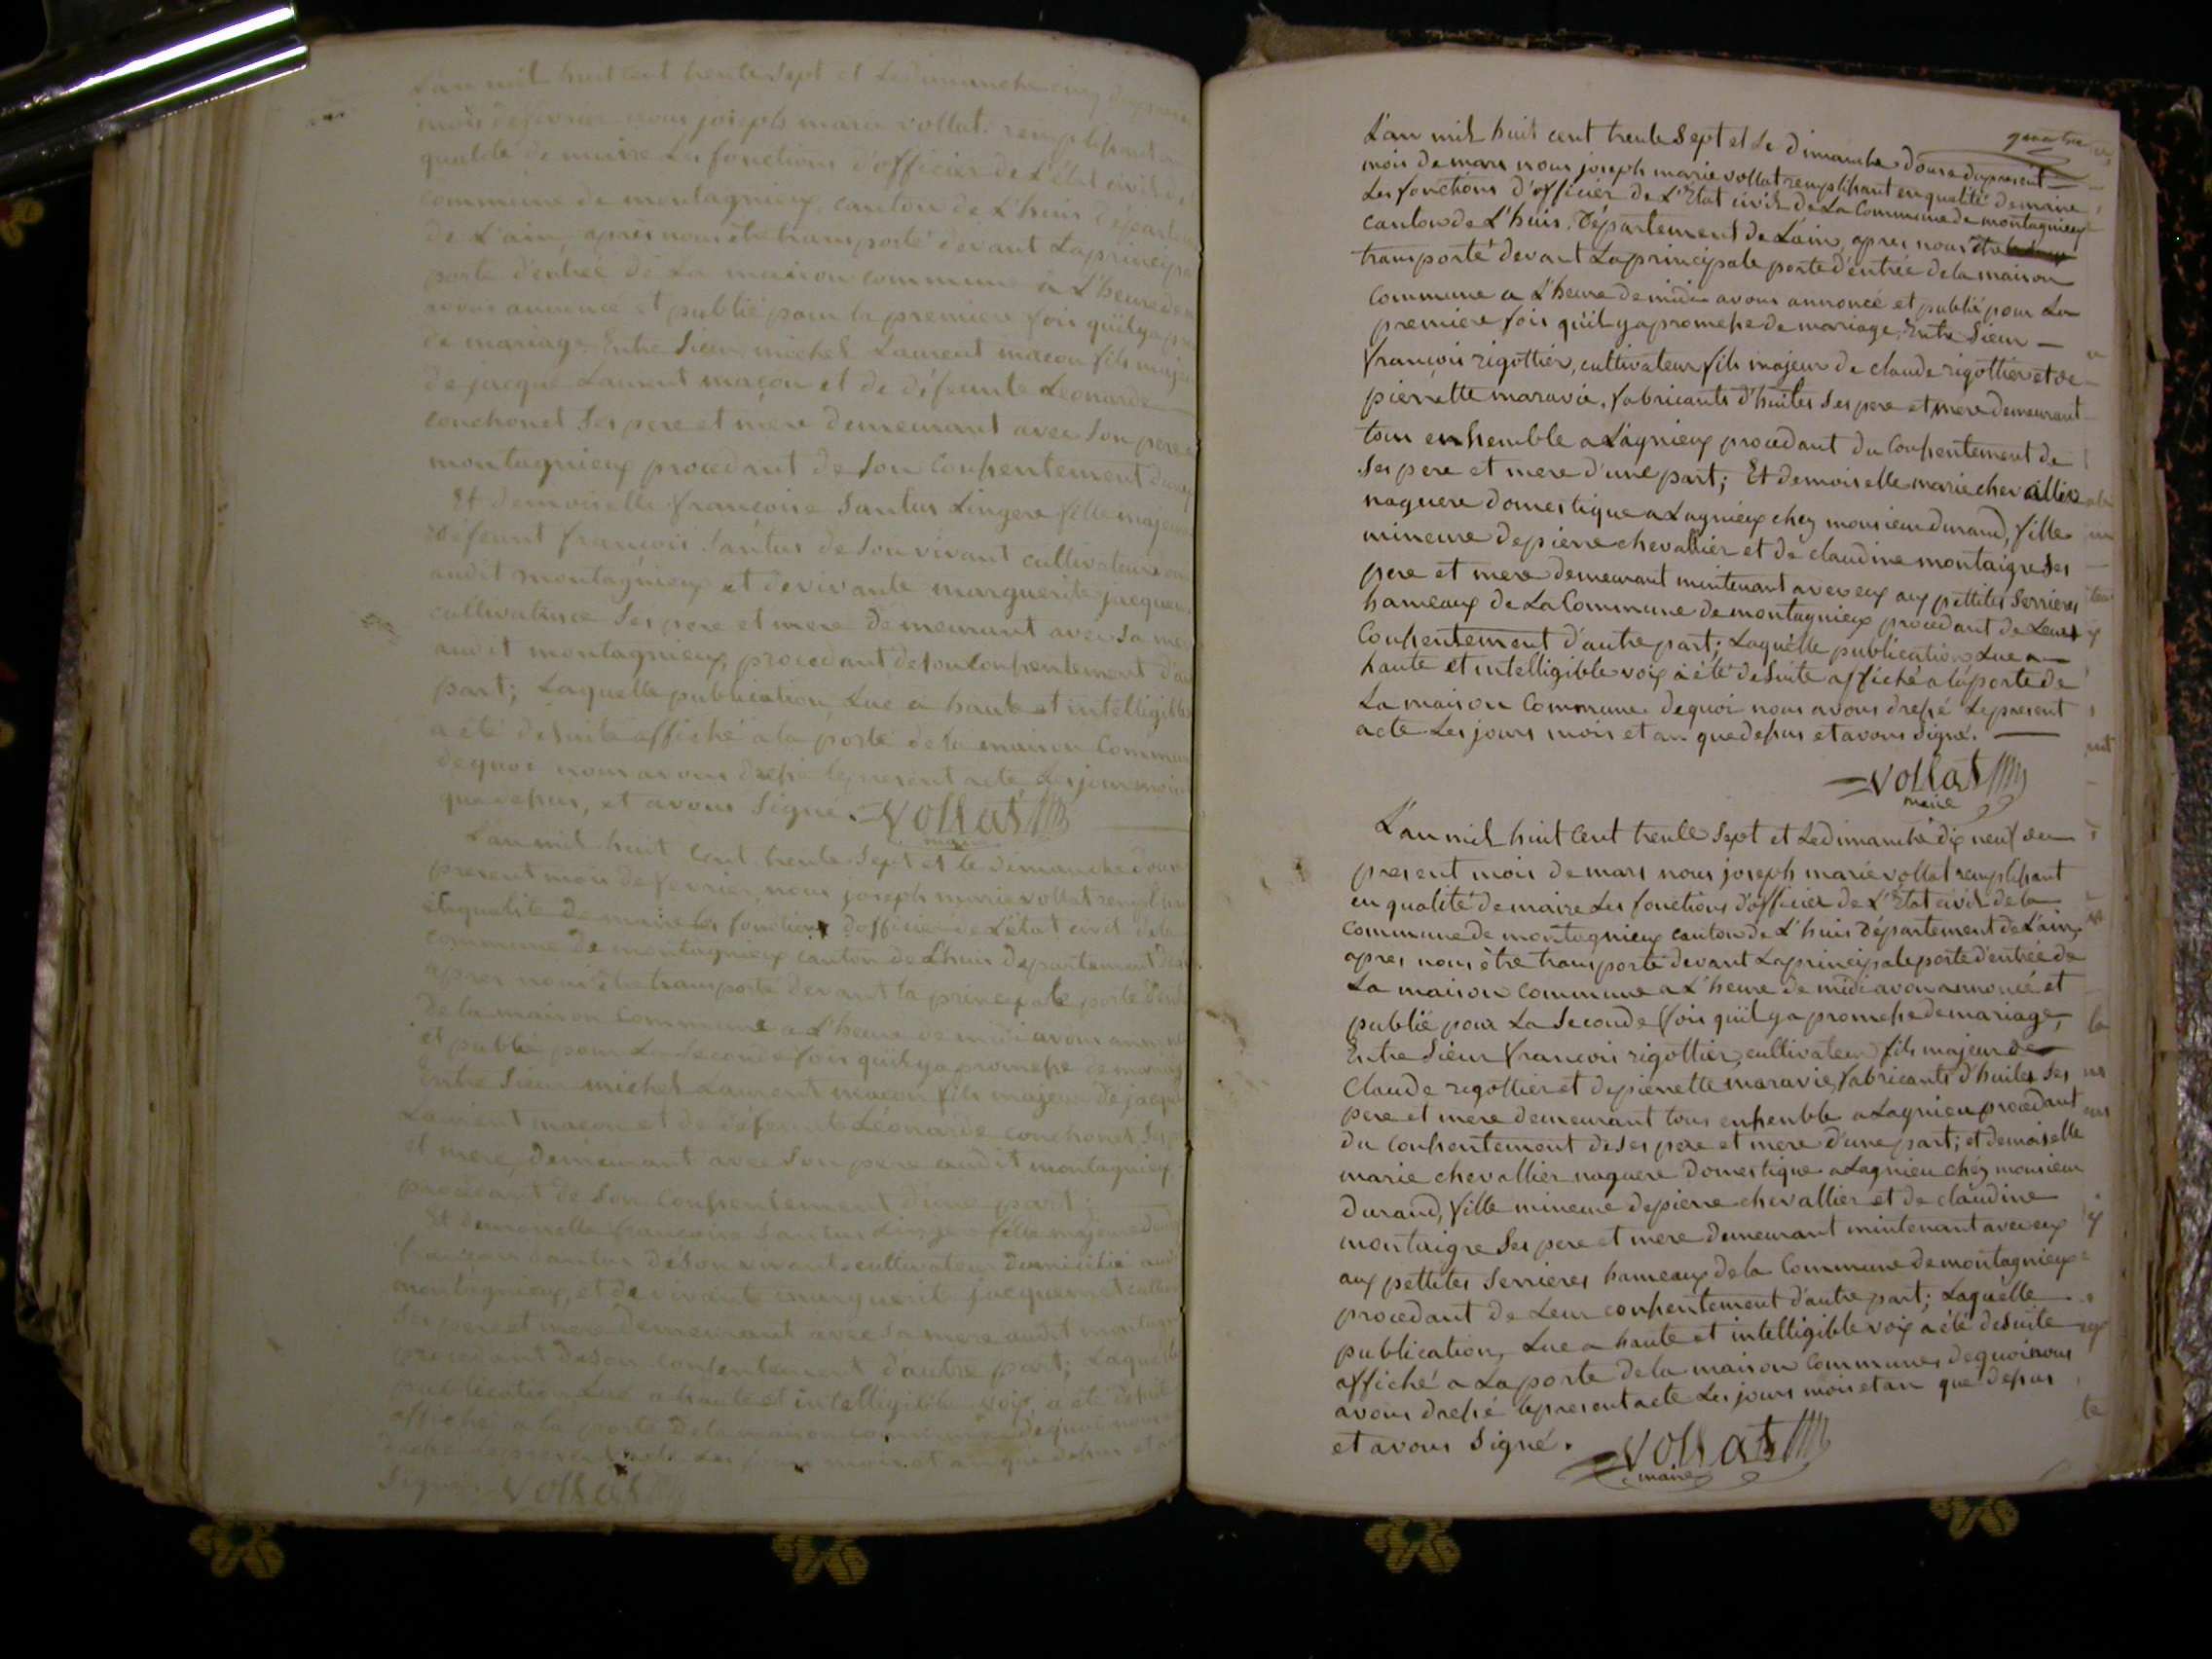 L'an mil huit cent trente sept et le dimanche cinq du present
mois de fevrier nous joseph marie vollat remplissant en
qualité de maire les fonctions d'officier de L'état civil de
commune de montagnieux, canton de L'huis Départem
de L'ain, après nous être transporté devant La principa
porte d'entrée de La maison commune à L'heure de
avons annoncé et publié pour la premiere fois qu'il y a
de mariage Entre Sieur michel Laurent macon fils maje
de jacque Laurent maçon et de défeunte Léonarde
conchonet Ses pere et mere demeurant avec Son pere
montagnieux procedant de Son Consentement d'une
Et demoiselle françoise Santus Lingere fille majeure
défeunt françois Santus de Son vivant cultivateur
audit montagnieux et de vivante marguerite jacque
cultivatrice Ses pere et mere demeurant avec Sa me
audit montagnieux, procedant de Son Consentement d'au
part; Laquelle publication Lue a haute et intelligible
a été de suite affiché a la porte de la maison Commun
de quoi nous avons dressé le present acte Les jour mois
que dessus, et avons Signé. Vollat
maire
L'an mil huit Cent trente Sept et le dimanche douze
present mois de fevrier, nous joseph marie vollat rempliss
en qualité de maire les fonctions d'officier de L'état civil de la
commune de montagnieux canton de L'huis département de
apres nous être transporté devant la principale porte d'entr
de la maison Commune a L'heure de midi avons annon
et publié pour La Seconde fois qu'il y a promesse de mariag
Entre Sieur michel Laurent macon fils majeur de jacque
Laurent macon et de défeunte Léonarde conchonet Ses
et mere, demeurant avec Son pere audit montagnieux
procedant de Son Consentement d'une part;
Et demoiselle françoise Santus Lingere fille majeure
françois Santus de Son vivant cultivateur domicilié aud
montagnieux, et de vivante marguerite jacquemet cultiv
Ses pere et mere demeurant avec Sa mere audit montagn
procedant de Son Consentement d'autre part; Laquelle
publication Lue a haute et intelligible voix, a été de suite
affiché a la porte de la maison commune de quoi nous
dressé le present acte Les jour mois et an que dessus et av
Signé. Vollat
quatre
L'an mil huit cent trente Sept et Le dimanche douze du present
mois de mars nous joseph marie vollat remplissant en qualité de maire
Les fonctions d'officier de L'Etat civil de La Commune de montagnieux
canton de L'huis, Département de L'ain, apres nous être
transporté devant La principale porte d'entrée de la maison
Commune a L'heure de midi avons annoncé et publié pour La
premiere fois qu'il y a promesse de mariage, Entre Sieur
françois rigottier, cultivateur fils majeur de claude rigottier et de
pierrette maravie, fabricants d'huiles Ses pere et mere demeurant
tous ensemble a Lagnieux procedant du Consentement de
Ses pere et mere d'une part; Et demoiselle marie chevallier
naguere domestique a Lagnieux chez monsieur durand, fille
mineure de pierre chevallier et de claudine montaigre Ses
pere et mere demeurant mintenant avec eux aux pettites Serrieres
hameaux de La Commune de montagnieux procedant de Leur
Consentement d'autre part; Laquelle publication Lue a
haute et intelligible voix a été de Suite affiché a la porte de
La maison Commune. de quoi nous avons dressé Le present
acte Les jours mois et an que dessus et avons Signé.
Vollat
maire
L'an mil huit Cent trente Sept et Le dimanche dix neuf du
present mois de mars nous joseph marie vollat remplissant
en qualité de maire Les fonctions d'officier de L'Etat civil de la
Commune de montagnieux canton de L'huis Département de L'ain,
apres nous être transporté devant La principale porte d'entrée de
La maison Commune a L'heure de midi avons annoncé et
publié pour La Seconde fois qu'il y a promesse de mariage,
Entre Sieur françois rigottier, cultivateur fils majeur de
Claude rigottier et de pierrette maravie, fabricants d'huiles Ses
pere et mere demeurant tous ensemble a Lagnieu procedant
du Consentement de Ses pere et mere d'une part; et demoiselle
marie chevallier naguere domestique a Lagnieu chéz monsieur
durand, fille mineure de pierre chevallier et de claudine
montaigre Ses pere et mere demeurant mintenant avec eux
aux pettites Serrieres hameaux de la Commune de montagnieux
procedant de Leur consentement d'autre part; Laquelle
publication, Lue a haute et intelligible voix a été de Suite
affiché a La porte de la maison Commune, de quoi nous
avons dressé le present acte Les jours mois et an que dessus
et avons Signé. Vollat
maire